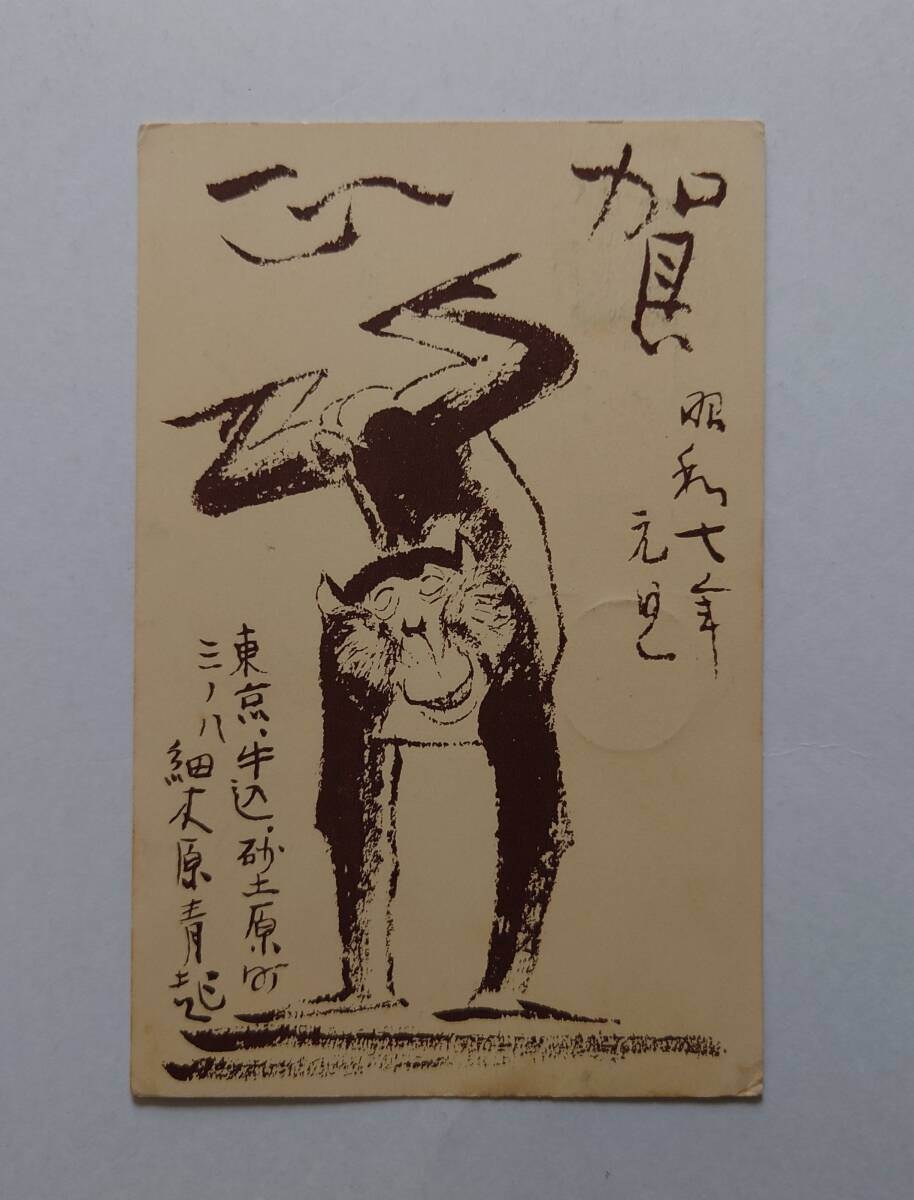 賀正
昭和七年
元旦
東京、牛込、砂土原町
三ノ八 細木原青起